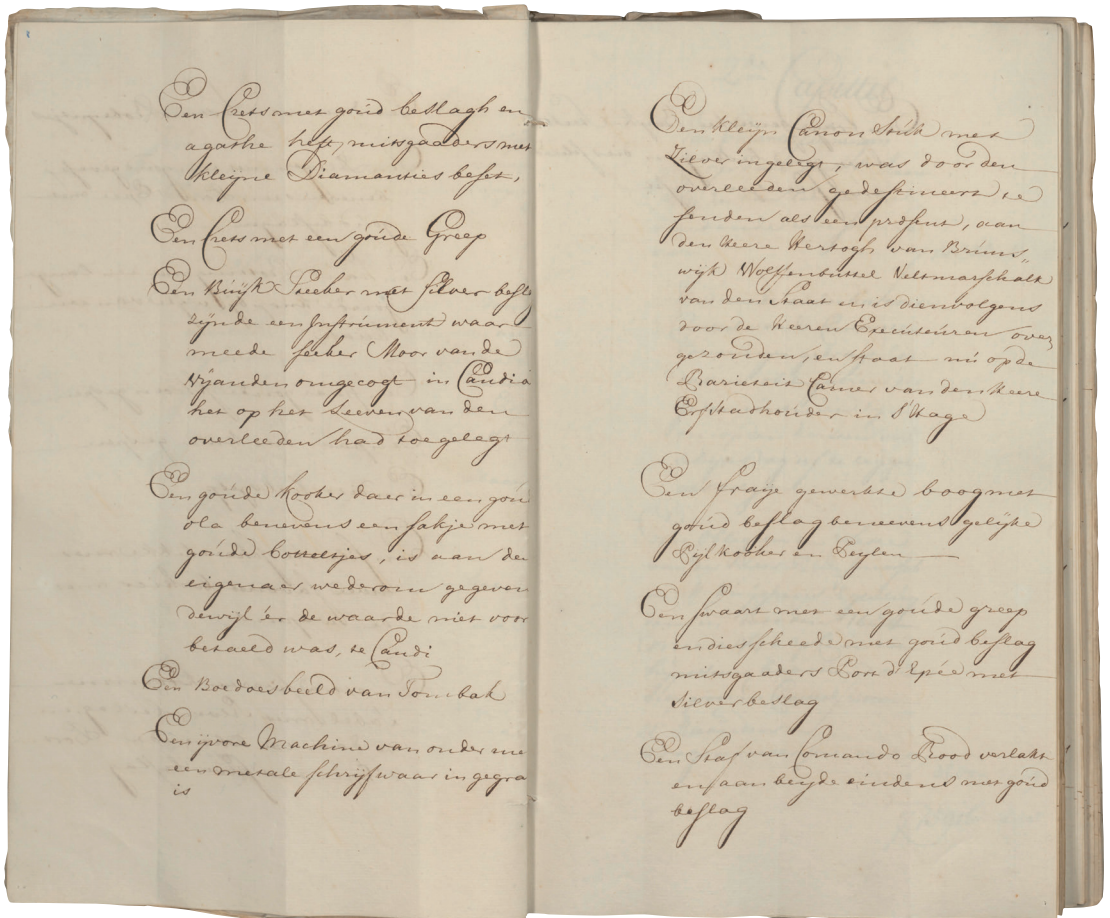 Een Crets met goud beslagh en
agathe heft, mitsgaaders met
kleijne Diamanties beset,
Een Crets met een goude Greep
Een Buijk Steeker met silver besl
zijnde een Instrument waar
meede seeker Moor van de
vyanden omgecogt in Candia
het op het Leeven van den
overleeden had toegelegt
Een goude kooker daer in een gou
ola benevens een sakje met
goude botteltjes, is aan den
eigenaer wederom gegeven
dewijl 'er de waarde niet voor
betaeld was, te Candi
Een Boedoes beeld van Tombak
Een ijvore Machine van onder me
een metale schrijf waar in gegra
is
Een kleijn Canon Stuk met
Zilver ingelegt, was door den
overleeden gedestineert te
senden als een præsent, aan
den Heere Hertogh van Bruns„
wijk Wolffenbuttel Veltmarschalk
van den Staat en is dienvolgens
door de Heeren Executeuren over
gezonden, en staat nu op de
Rariteit Camer van den Heere
Erfstadhouder in S'Hage
Een fraije gewerkte boog met
goud beslag beneevens gelijke
Pijlkooker en Peylen
Een swaart met een goude greep
en dies scheede met goud beslag
mitsgaaders Port d'Epée met
silver beslag
Een Staf van Comando Rood verlakt
en aan beyde eindens met goud
beslag